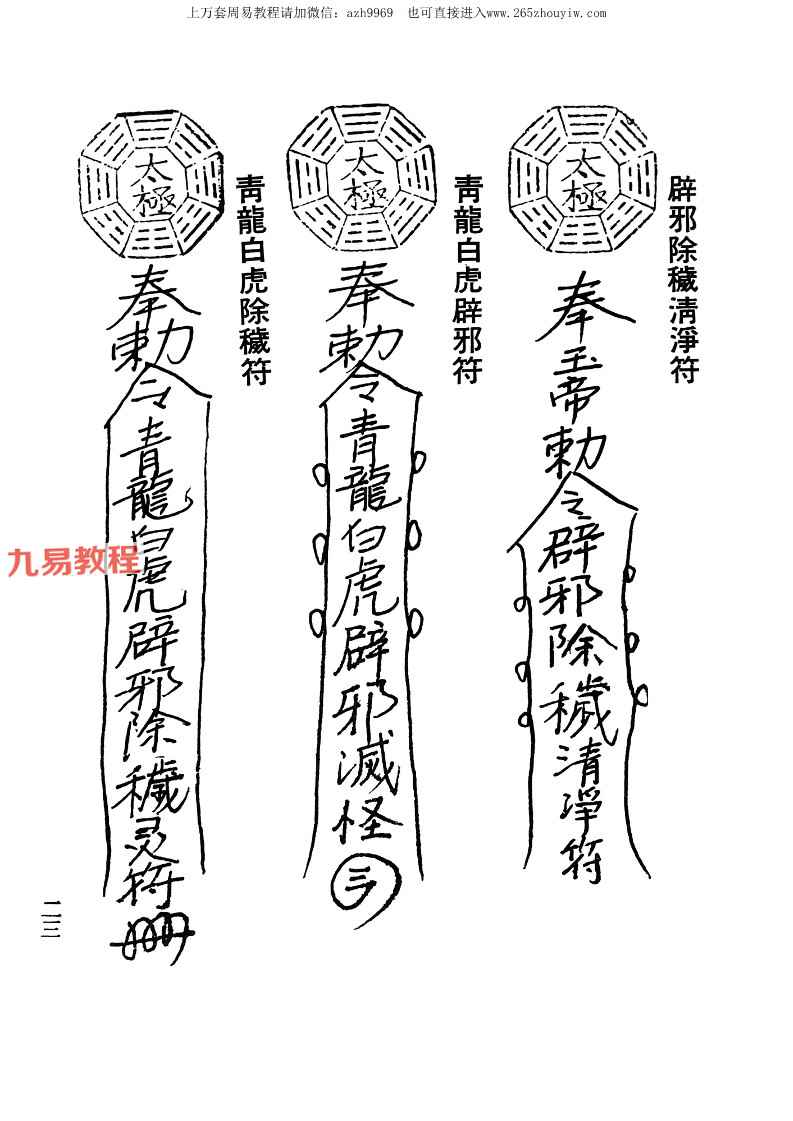 上万套周易教程请加微信：azh9969　也可直接进入www.265zhouyiw.com
辟邪除穢淸淨符
太極
奉玉帝勅令辟邪除穢清淨符
靑龍白虎辟邪符
太極
奉勅令青龍白虎辟邪滅怪
靑龍白虎除穢符
太極
奉勅令青龍白虎辟邪除穢灵符
九易教程
二三